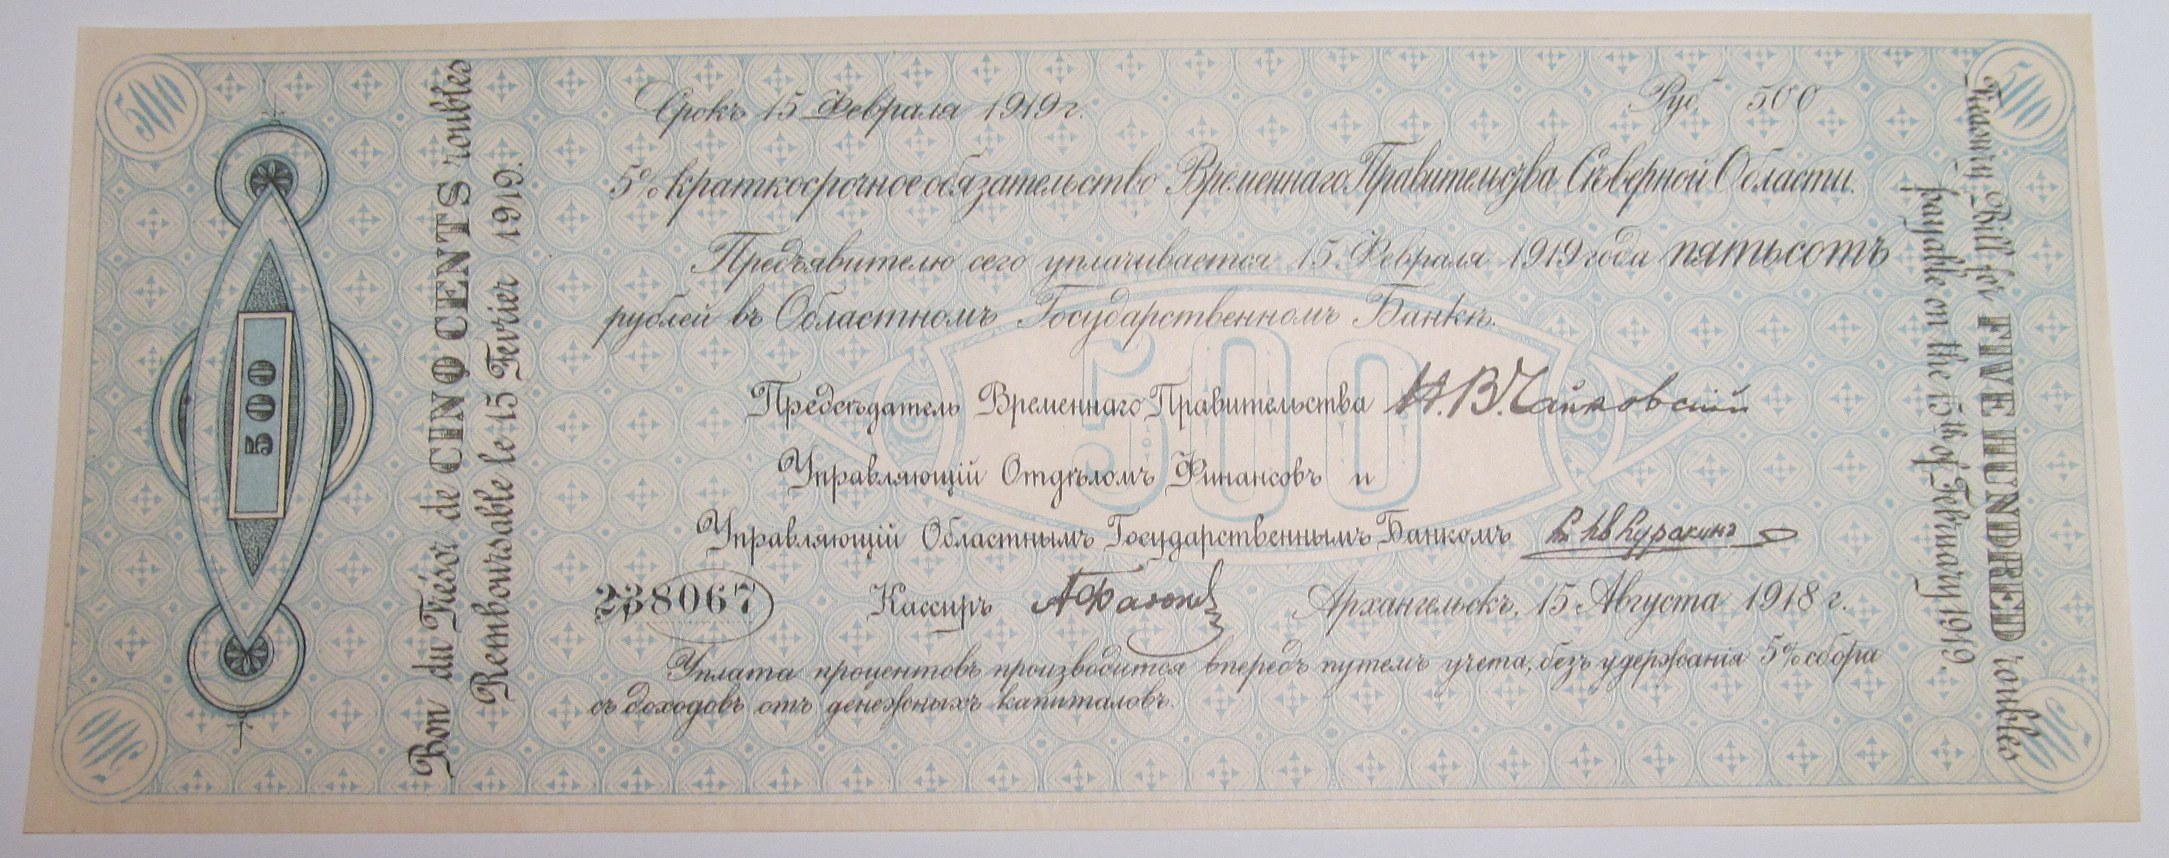 500
500
Срокъ 15 Февраля 1919 г.
Руб. 500
5% краткосрочное обязательство Временнаго Правительства Сѣверной Области.
Предъявителю сего уплачивается 15 Февраля 1919 года пятьсотъ
рублей въ Областномъ Государственномъ Банкѣ.
500
Предсѣдатель Временнаго Правительства Н. В. Чайковскій
Управляющій Отдѣломъ Финансовъ и
Управляющій Областнымъ Государственнымъ Банкомъ
238067
Кассиръ
Архангельскъ, 15 Августа 1918 г.
Уплата процентовъ производится впередъ путемъ учета, безъ удержанія 5% сбора
съ доходовъ отъ денежныхъ капиталовъ.
500
Bon du Trésor de CINQ CENTS roubles
Remboursable le 15 Fevrier 1919.
Treasury Bill for FIVE HUNDRED roubles
payable on the 15th of February 1919.
500
500